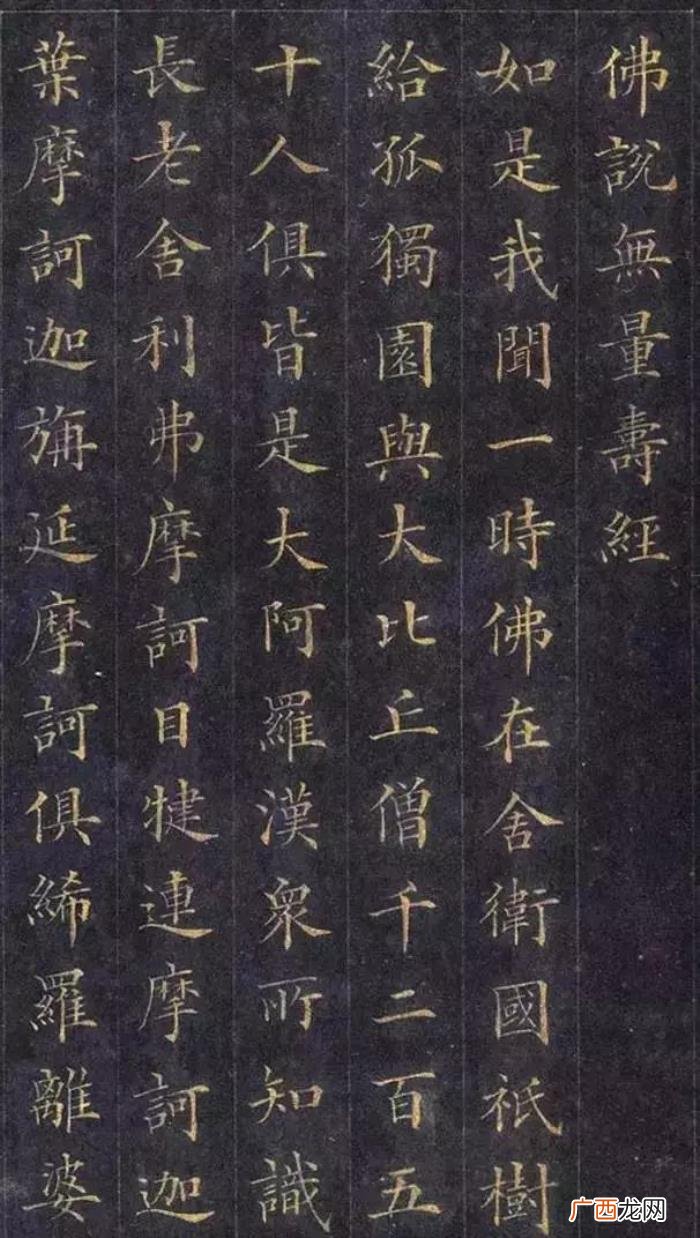 佛說無量壽經
如是我聞一時佛在舍衛國祇樹
給孤獨園與大比丘僧千二百五
十人俱皆是大阿羅漢衆所知識
長老舍利弗摩訶目犍連摩訶迦
葉摩訶迦旃延摩訶俱絺羅離婆
广西龙网